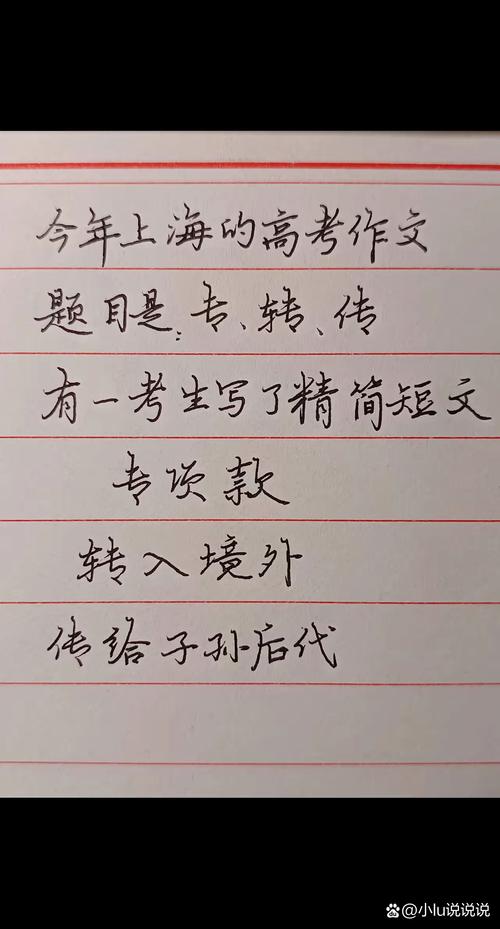 今年上海的高考作文
题目是:专、转、传
有一考生写了精简短文
专项款
转入境外
传给子孙后代
@小lu说说说